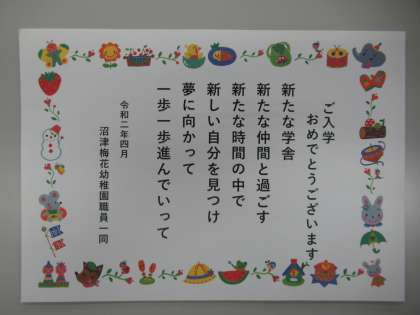 ご入学
おめでとうございます
新たな学舎
新たな仲間と過ごす
新たな時間の中で
新しい自分を見つけ
夢に向かって
一歩一歩進んでいって
令和二年四月
沼津梅花幼稚園職員一同